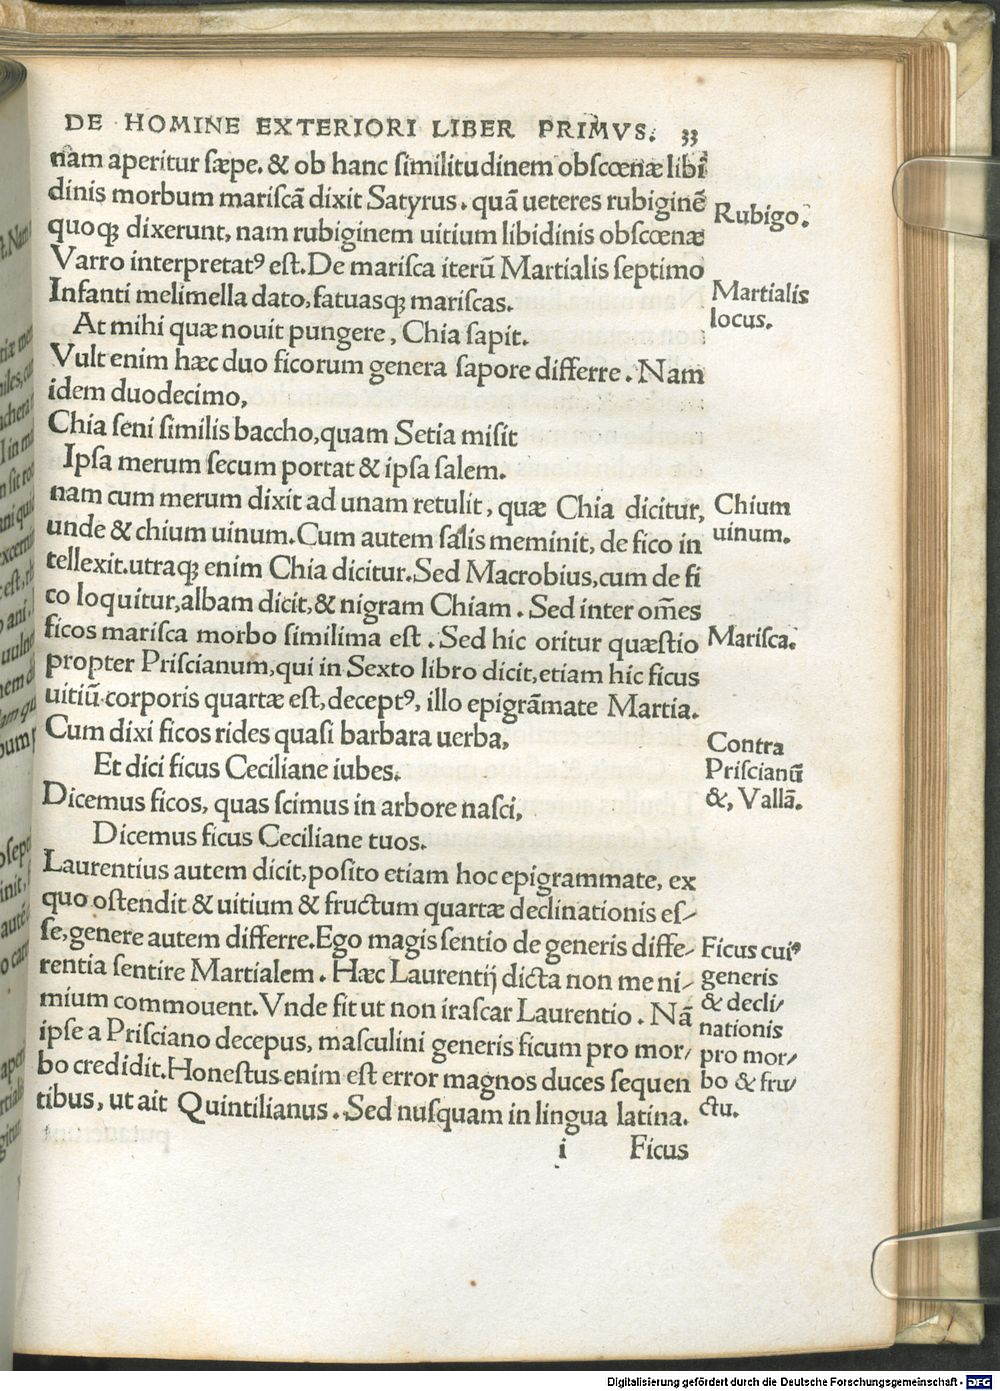 DE HOMINE EXTERIORI LIBER PRIMVS. 33
nam aperitur sæpe. & ob hanc similitudinem obscœnæ libi
dinis morbum mariscã dixit Satyrus. quã ueteres rubiginẽ
quoqꝫ dixerunt, nam rubiginem uitium libidinis obscœnæ
Varro interpretatꝰ est. De marisca iterũ Martialis septimo
Infanti melimella dato, fatuasqꝫ mariscas.
At mihi quæ nouit pungere, Chia sapit.
Vult enim hæc duo ficorum genera sapore differre. Nam
idem duodecimo,
Chia seni similis baccho, quam Setia misit
Ipsa merum secum portat & ipsa salem.
nam cum merum dixit ad unam retulit, quæ Chia dicitur,
unde & chium uinum. Cum autem salis meminit, de fico in
tellexit. utraqꝫ enim Chia dicitur. Sed Macrobius, cum de fi
co loquitur, albam dicit, & nigram Chiam. Sed inter om̃es
ficos marisca morbo similima est. Sed hic oritur quæstio
propter Priscianum, qui in Sexto libro dicit, etiam hic ficus
uitiũ corporis quartæ est, deceptꝰ, illo epigrãmate Martia.
Cum dixi ficos rides quasi barbara uerba,
Et dici ficus Ceciliane iubes.
Dicemus ficos, quas scimus in arbore nasci,
Dicemus ficus Ceciliane tuos.
Laurentius autem dicit, posito etiam hoc epigrammate, ex
quo ostendit & uitium & fructum quartæ declinationis es/
se, genere autem differre. Ego magis sentio de generis diffe/
rentia sentire Martialem. Hæc Laurentij dicta non me ni/
mium commouent. Vnde fit ut non irascar Laurentio. Nã
ipse a Prisciano decepus, masculini generis ficum pro mor/
bo credidit. Honestus enim est error magnos duces sequen
tibus, ut ait Quintilianus. Sed nusquam in lingua latina.
i Ficus
Rubigo.
Martialis
locus.
Chium
uinum.
Marisca.
Contra
Priscianũ
&, Vallã.
Ficus cuiꝰ
generis
& decli/
nationis
pro mor/
bo & fru/
ctu.
Digitalisierung gefördert durch die Deutsche Forschungsgemeinschaft - DFG